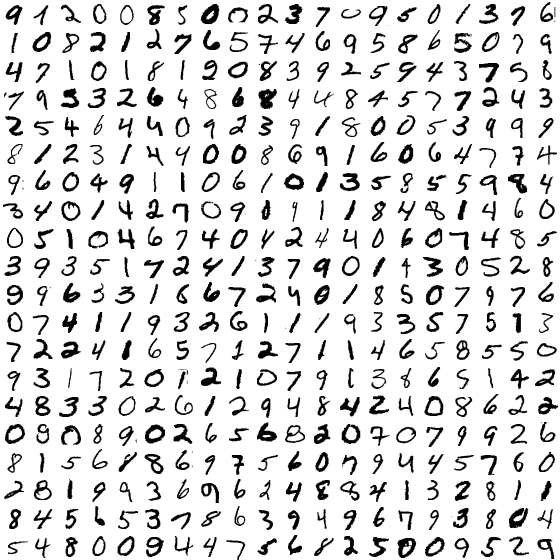 9 1 2 0 0 8 5 0 0 2 3 7 0 9 5 0 1 3 7 6
1 0 8 2 1 2 7 6 5 7 4 6 9 5 8 6 5 0 7 9
4 7 1 0 1 8 1 2 0 8 3 9 2 5 9 4 3 7 5 8
7 9 5 3 2 6 4 8 6 8 4 4 8 4 5 7 7 2 4 3
2 5 4 6 4 4 0 9 2 3 9 1 8 0 0 5 3 9 9 9
8 1 2 3 1 4 4 0 0 8 6 9 1 6 0 6 4 7 7 4
9 6 0 4 9 1 1 0 6 1 0 1 3 5 8 5 5 9 8 4
3 4 0 1 4 2 7 0 9 1 9 1 1 8 4 8 1 4 6 0
0 5 1 0 4 6 7 4 0 4 2 4 4 0 6 0 7 4 8 5
3 9 3 5 1 7 2 4 1 3 7 9 0 1 4 3 0 5 2 8
9 9 6 3 3 1 6 6 7 2 4 0 1 8 5 0 7 9 7 6
0 7 4 1 1 9 3 2 6 1 1 1 9 3 3 5 7 5 1 3
7 2 2 4 1 6 5 7 1 2 7 1 1 4 6 5 8 5 5 0
9 3 1 7 2 0 1 2 1 0 7 9 1 3 8 6 5 1 4 2
4 8 3 3 0 2 6 1 2 9 4 8 4 2 4 0 8 6 2 2
0 8 0 8 9 0 2 6 5 6 8 2 0 7 0 7 9 9 2 6
8 1 5 6 8 8 6 9 7 5 6 0 7 9 4 4 5 7 6 0
2 8 1 9 9 3 6 9 6 2 4 8 8 4 1 3 2 8 1 1
8 4 5 6 5 3 7 8 6 3 9 4 9 6 7 9 3 8 0 4
5 4 8 0 0 9 4 4 7 5 6 8 2 5 0 0 9 5 2 9